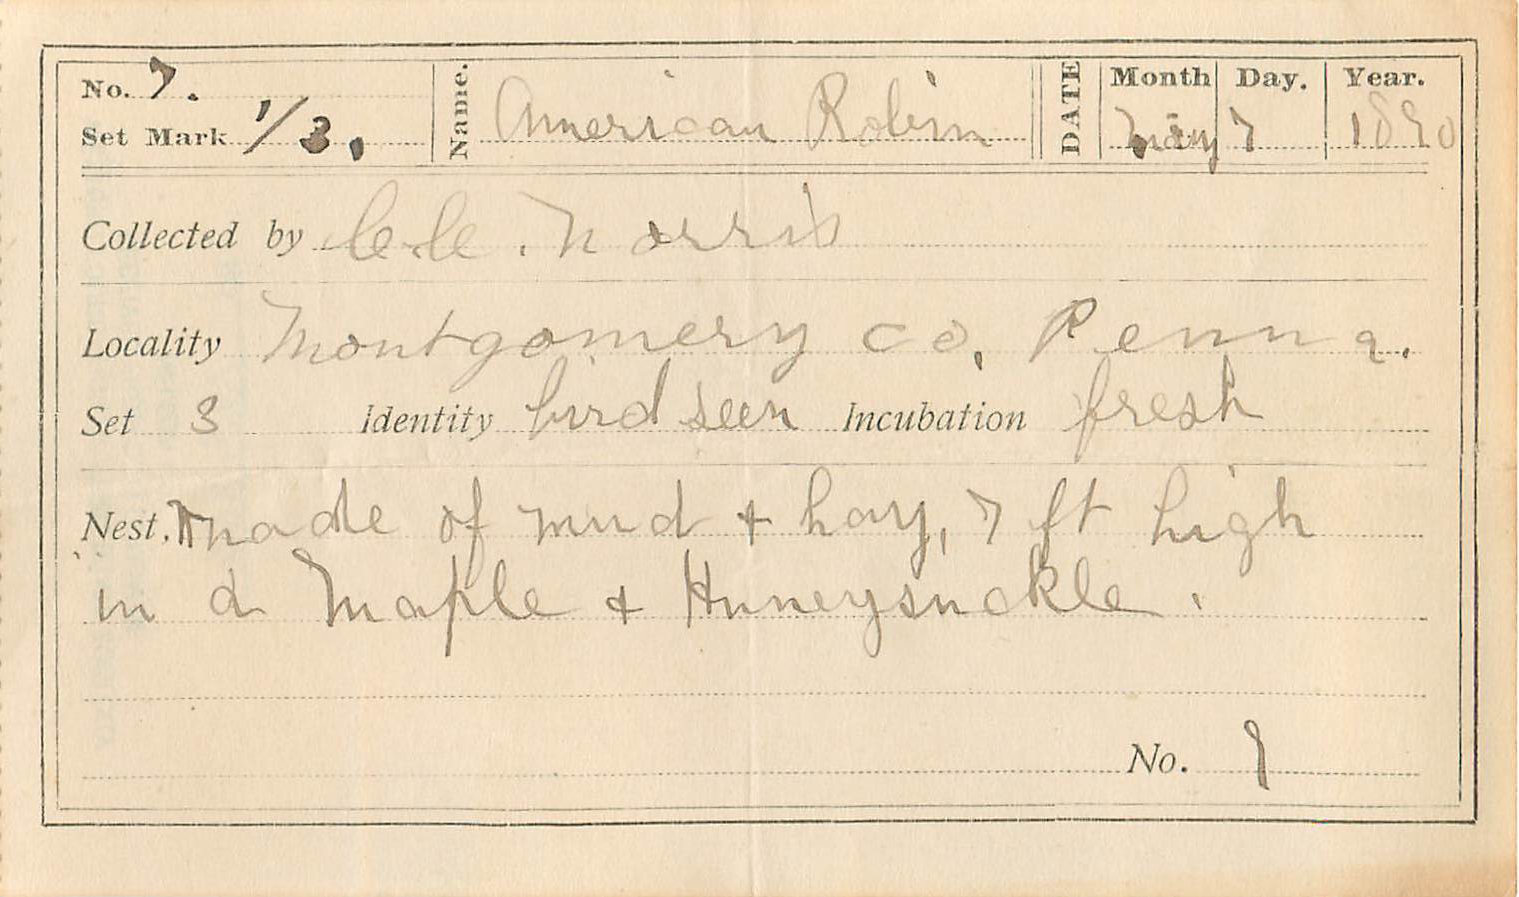 No. 7. Name. American Robin DATE Month May Day. 7 Year. 1890
Set Mark 1/3.
Collected by C.C. Norris
Locality Montgomery Co. Penna.
Set 3 Identity bird seen Incubation fresh
Nest. Made of mud & hay, 7 ft high
in a Maple & Huneysuckle.
No. 1